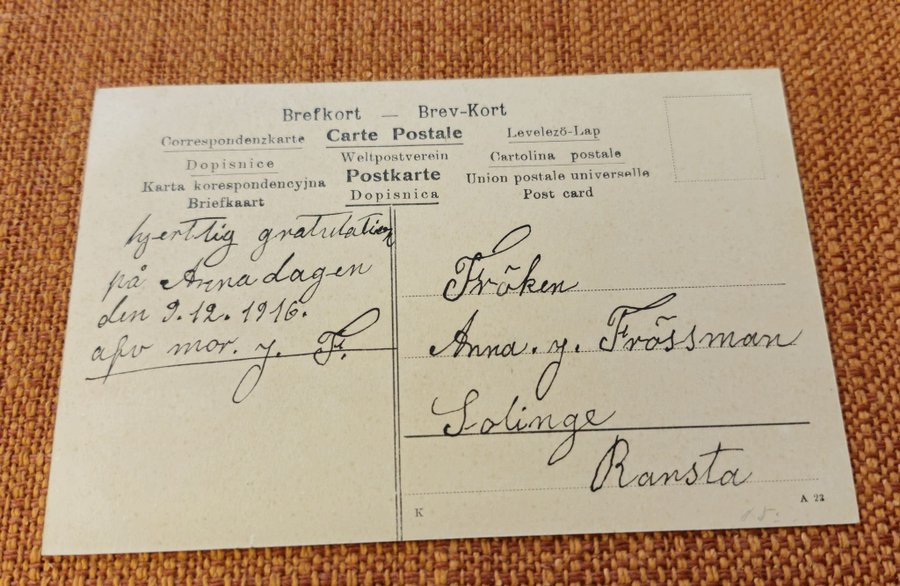 Brefkort — Brev-Kort
Correspondenzkarte Carte Postale Levelező-Lap
Dopisnice Weltpostverein Cartolina postale
Karta korespondencyjna Postkarte Union postale universelle
Briefkaart Dopisnica Post card
hjerttlig gratulation
på Anna dagen
den 9.12.1916.
afv mor. y. F.
Fröken
Anna. y. Frössman
Solinge
Ransta
K
A 23